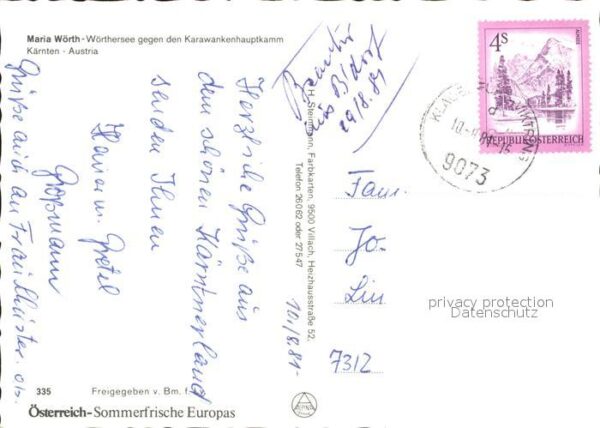 Maria Wörth - Wörthersee gegen den Karawankenhauptkamm
Kärnten - Austria
Herzliche Grüße aus
dem schönen Kärntnerland
senden Ihnen
Gretel
Großmann
Grüße auch an Frau
10/8.81
29/8.81
H. Steinmann, Farbkarten, 9500 Villach, Heizhausstraße 52,
Telefon 26062 oder 27547
4S
REPUBLIK ÖSTERREICH
9073
Fam.
Jo
Lin
7312
privacy protection
Datenschutz
335
Freigegeben v. Bm. f.
Österreich - Sommerfrische Europas